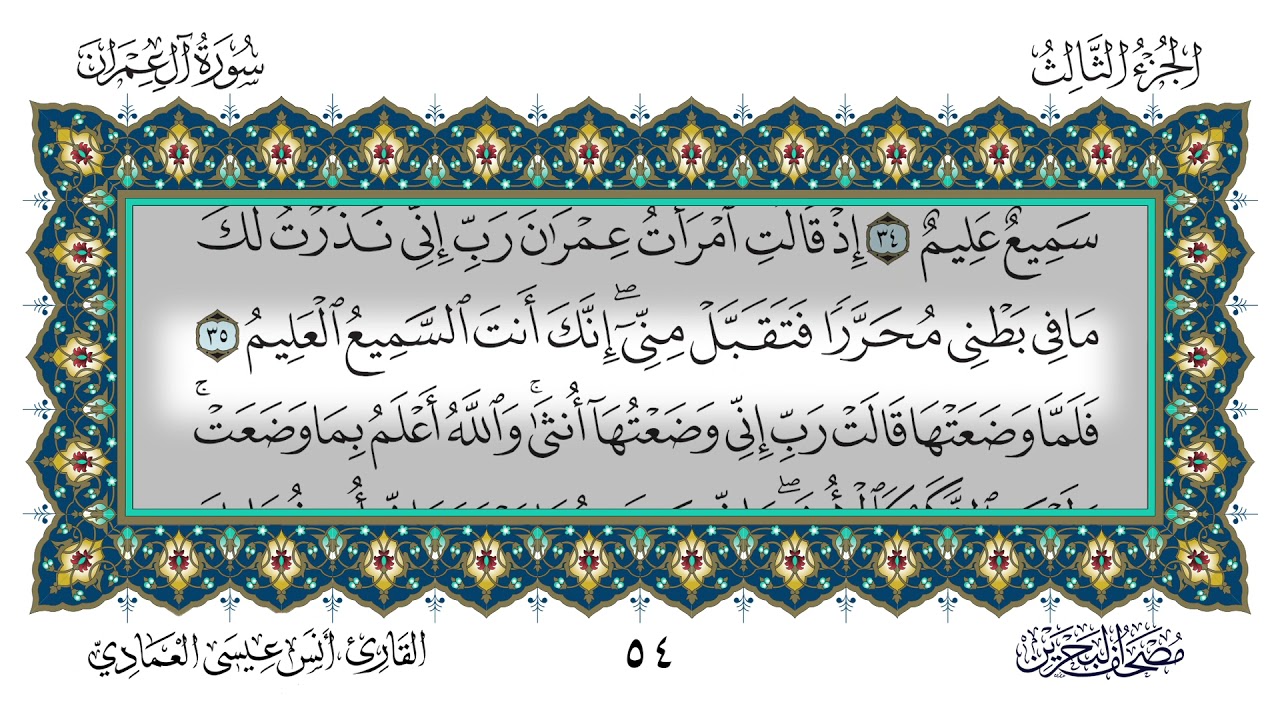 الجُزْءُ الثَّالِثُ
سُورَةُ آلِ عِمْرَانَ
سَمِيعٌ عَلِيمٌ ٣٤ إِذْ قَالَتِ ٱمْرَأَتُ عِمْرَٰنَ رَبِّ إِنِّي نَذَرْتُ لَكَ
مَا فِي بَطْنِي مُحَرَّرًا فَتَقَبَّلْ مِنِّيٓۖ إِنَّكَ أَنتَ ٱلسَّمِيعُ ٱلْعَلِيمُ ٣٥
فَلَمَّا وَضَعَتْهَا قَالَتْ رَبِّ إِنِّي وَضَعْتُهَآ أُنثَىٰۚ وَٱللَّهُ أَعْلَمُ بِمَا وَضَعَتْۚ
مُصْحَفُ البَحْرَيْنِ
٥٤
القَارِئُ، أَنَس عِيسَى العمَادِيّ